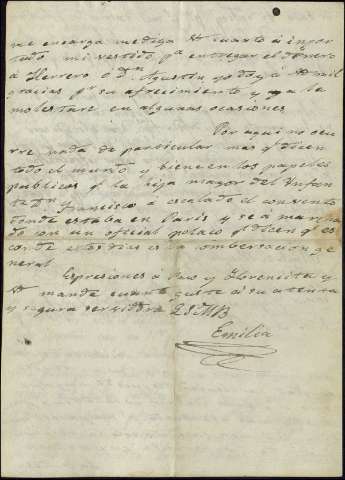 me encarga me diga V cuanto á inpor
tado mi vestido pª entregar el dinero
á Herrero o Dn Agustin yo doy á V mil
gracias pr su afrecimiento y ya le
molestare en algunas ocasiones
Por aqui no ocu
rre nada de particular mas q dicen
todo el mundo y biene en los papeles
publicos q la hija mayor del Infan
te Dn Francisco á escalado el convento
donde estaba en Paris y se á marcha
do con un oficial polaco q dicen q es
conde estos dias es la combersacion ge
neral
Espresiones á Paz y y
V mande cuanto guste á su atenta
y segura servidora Q S M B
Emilia